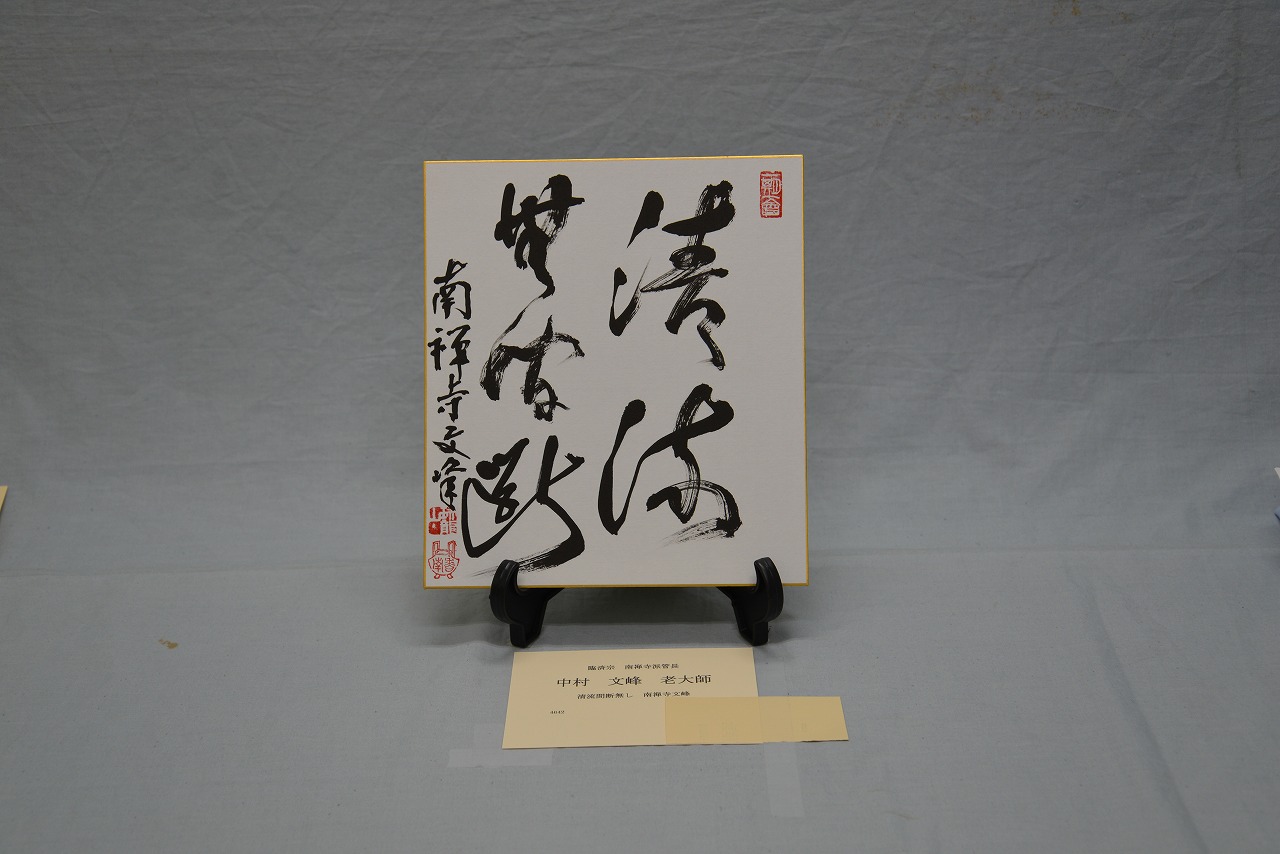 清流
無間断
南禅寺文峰
臨済宗　南禅寺派管長
中村　文峰　老大師
清流間断無し　南禅寺文峰
4042